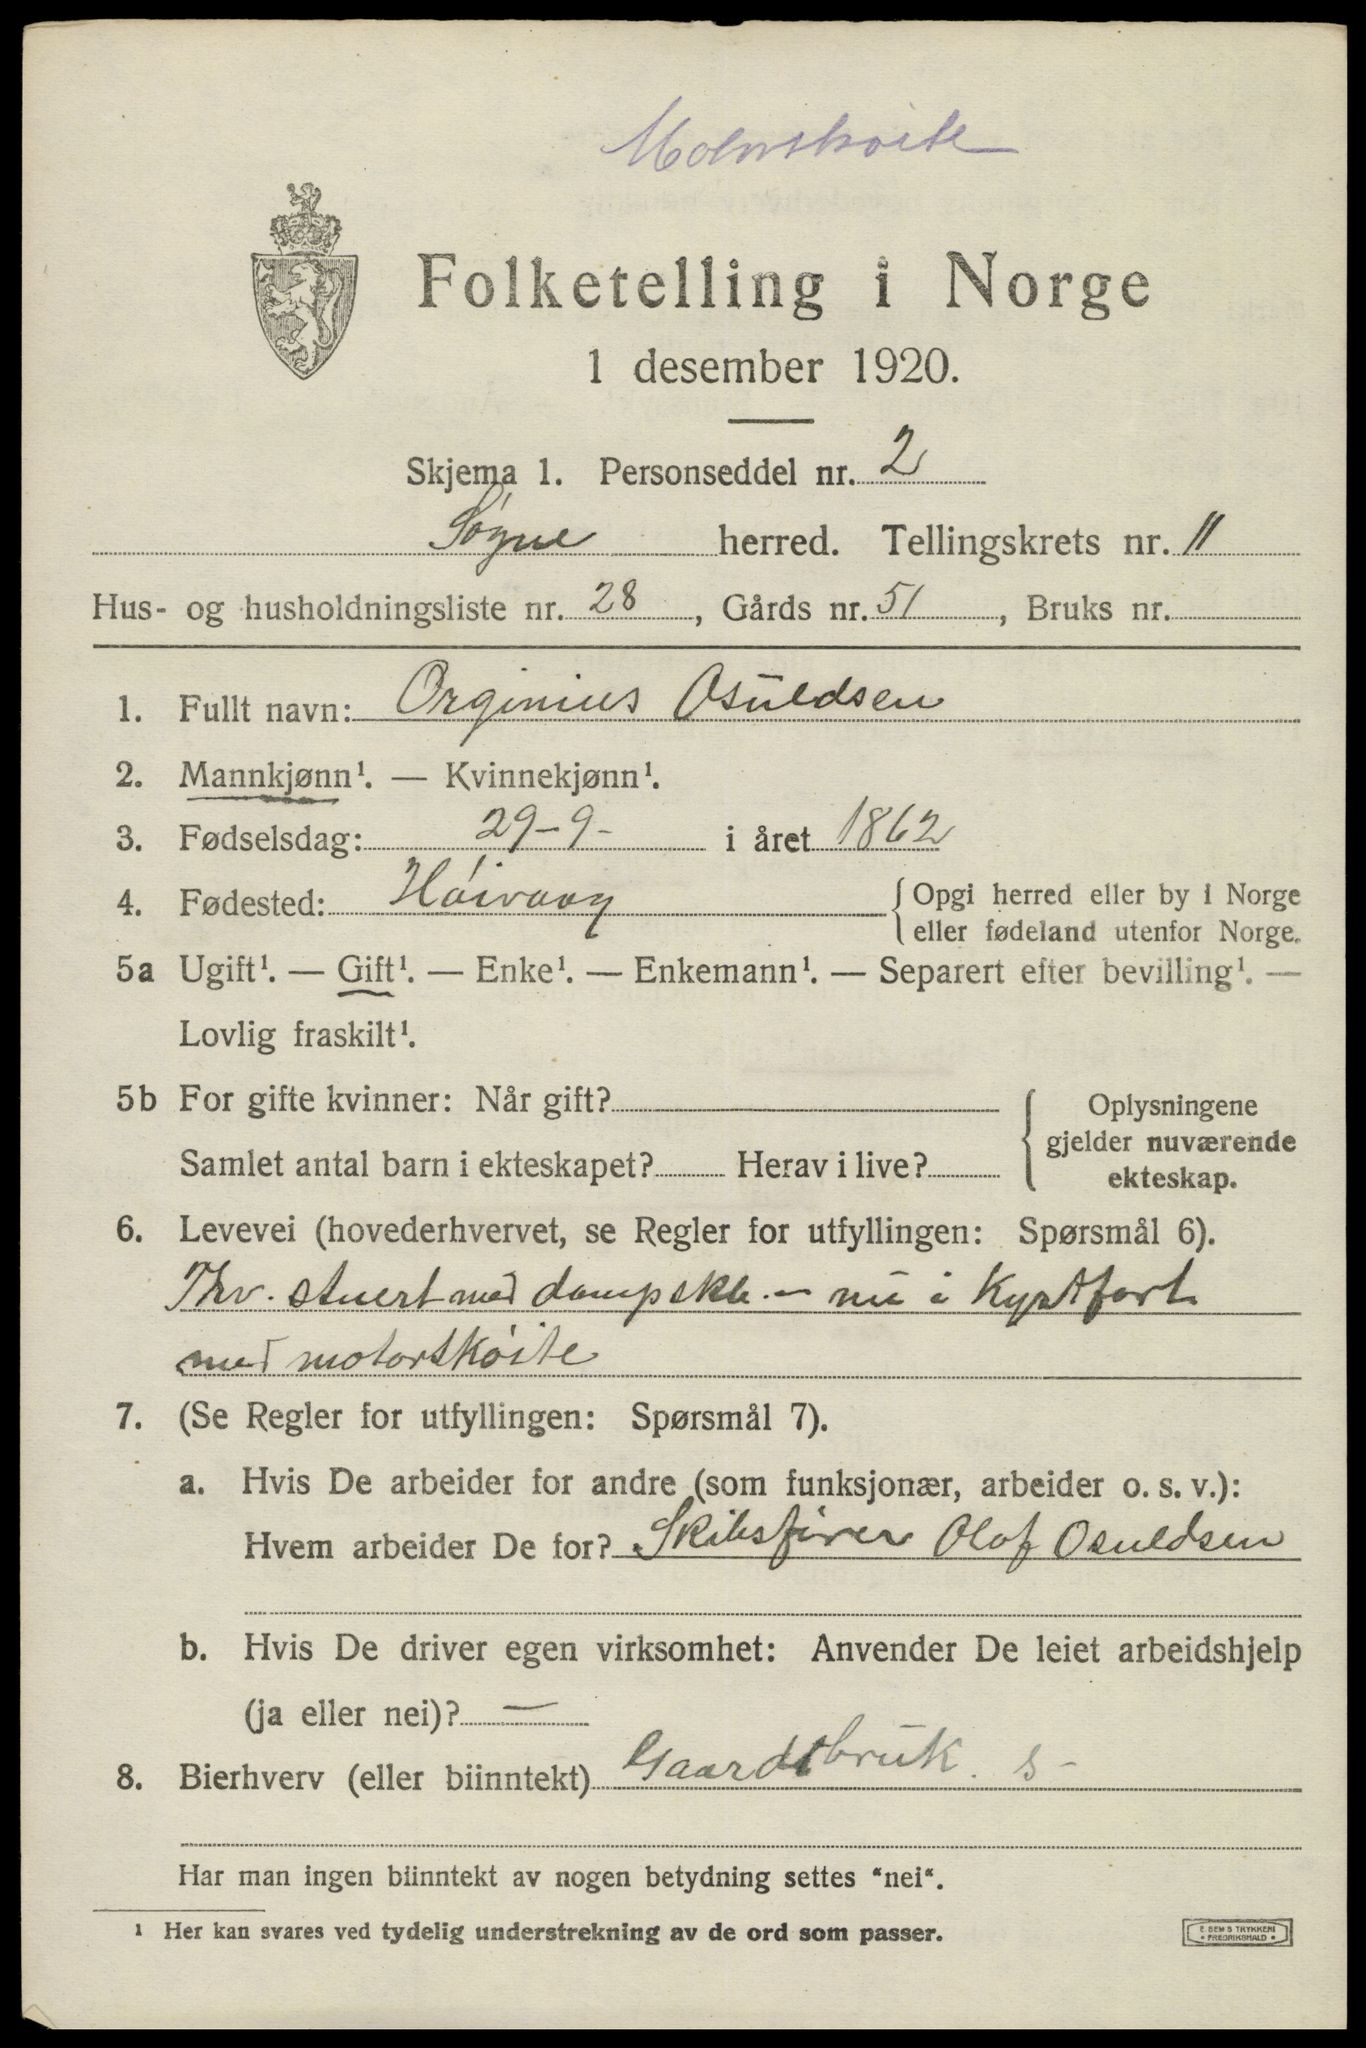 Motorskøite
Folketelling i Norge
1 desember 1920.
Skjema 1. Personseddel nr. 2
Søgne herred. Tellingskrets nr. 11
Hus- og husholdningsliste nr. 28, Gårds nr. 51, Bruks nr.
1. Fullt navn: Orginius Osuldsen
2. Mannkjønn¹. — Kvinnekjønn¹.
3. Fødselsdag: 29-9- i året 1862
4. Fødested: Høivaag {Opgi herred eller by i Norge
eller fødeland utenfor Norge.
5a Ugift¹. — Gift¹. — Enke¹. — Enkemann¹. — Separert efter bevilling¹. —
Lovlig fraskilt¹.
5b For gifte kvinner: Når gift? { Oplysningene
gjelder nuværende
Samlet antal barn i ekteskapet? Herav i live?
ekteskap.
6. Levevei (hovederhvervet, se Regler for utfyllingen: Spørsmål 6).
Thv. stuert med dampskb. - nu i Kystfart
med motorskøite
7. (Se Regler for utfyllingen: Spørsmål 7).
a. Hvis De arbeider for andre (som funksjonær, arbeider o. s. v.):
Hvem arbeider De for? Skibsfører Olof Osuldsen
b. Hvis De driver egen virksomhet: Anvender De leiet arbeidshjelp
(ja eller nei)? —
8. Bierhverv (eller biinntekt) Gaardsbruk. s -
Har man ingen biinntekt av nogen betydning settes "nei".
¹ Her kan svares ved tydelig understrekning av de ord som passer.
E. SEM'S TRYKKERI
FREDRIKSHALD